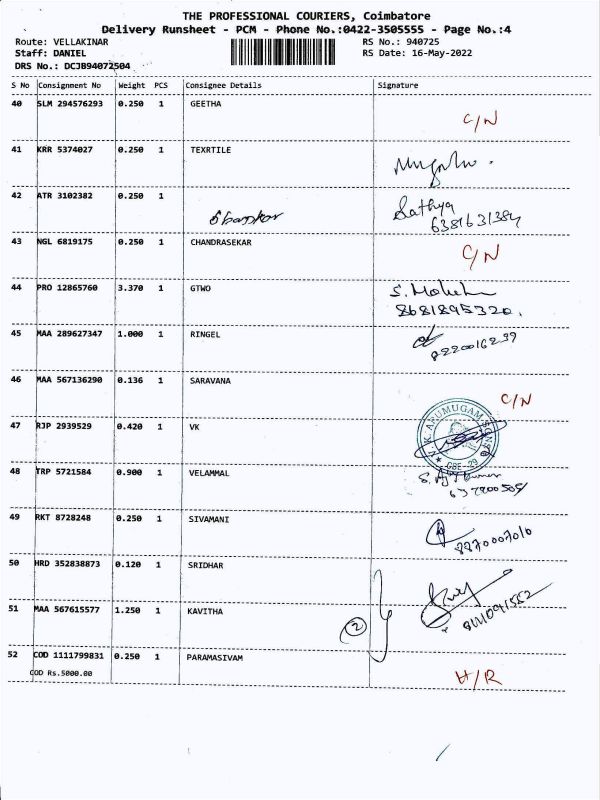 THE PROFESSIONAL COURIERS, Coimbatore
Delivery Runsheet - PCM - Phone No.:0422-3505555 - Page No.:4
Route: VELLAKINAR
RS No.: 940725
Staff: DANIEL
RS Date: 16-May-2022
DRS No.: DCJB94072504
S No Consignment No Weight PCS Consignee Details Signature
40 SLM 294576293 0.250 1 GEETHA
C/N
41 KRR 5374027 0.250 1 TEXRTILE
42 ATR 3102382 0.250 1
Shankar
Sathya
43 NGL 6819175 0.250 1 CHANDRASEKAR
C/N
44 PRO 12865760 3.370 1 GTWO
8681895320.
45 MAA 289627347 1.000 1 RINGEL
8220016239
46 MAA 567136290 0.136 1 SARAVANA
C/N
47 RJP 2939529 0.420 1 VK
48 TRP 5721584 0.900 1 VELAMMAL
49 RKT 8728248 0.250 1 SIVAMANI
8870007010
50 HRD 352838873 0.120 1 SRIDHAR
51 MAA 567615577 1.250 1 KAVITHA
2
52 COD 1111799831 0.250 1 PARAMASIVAM
COD Rs.5000.00
H/R